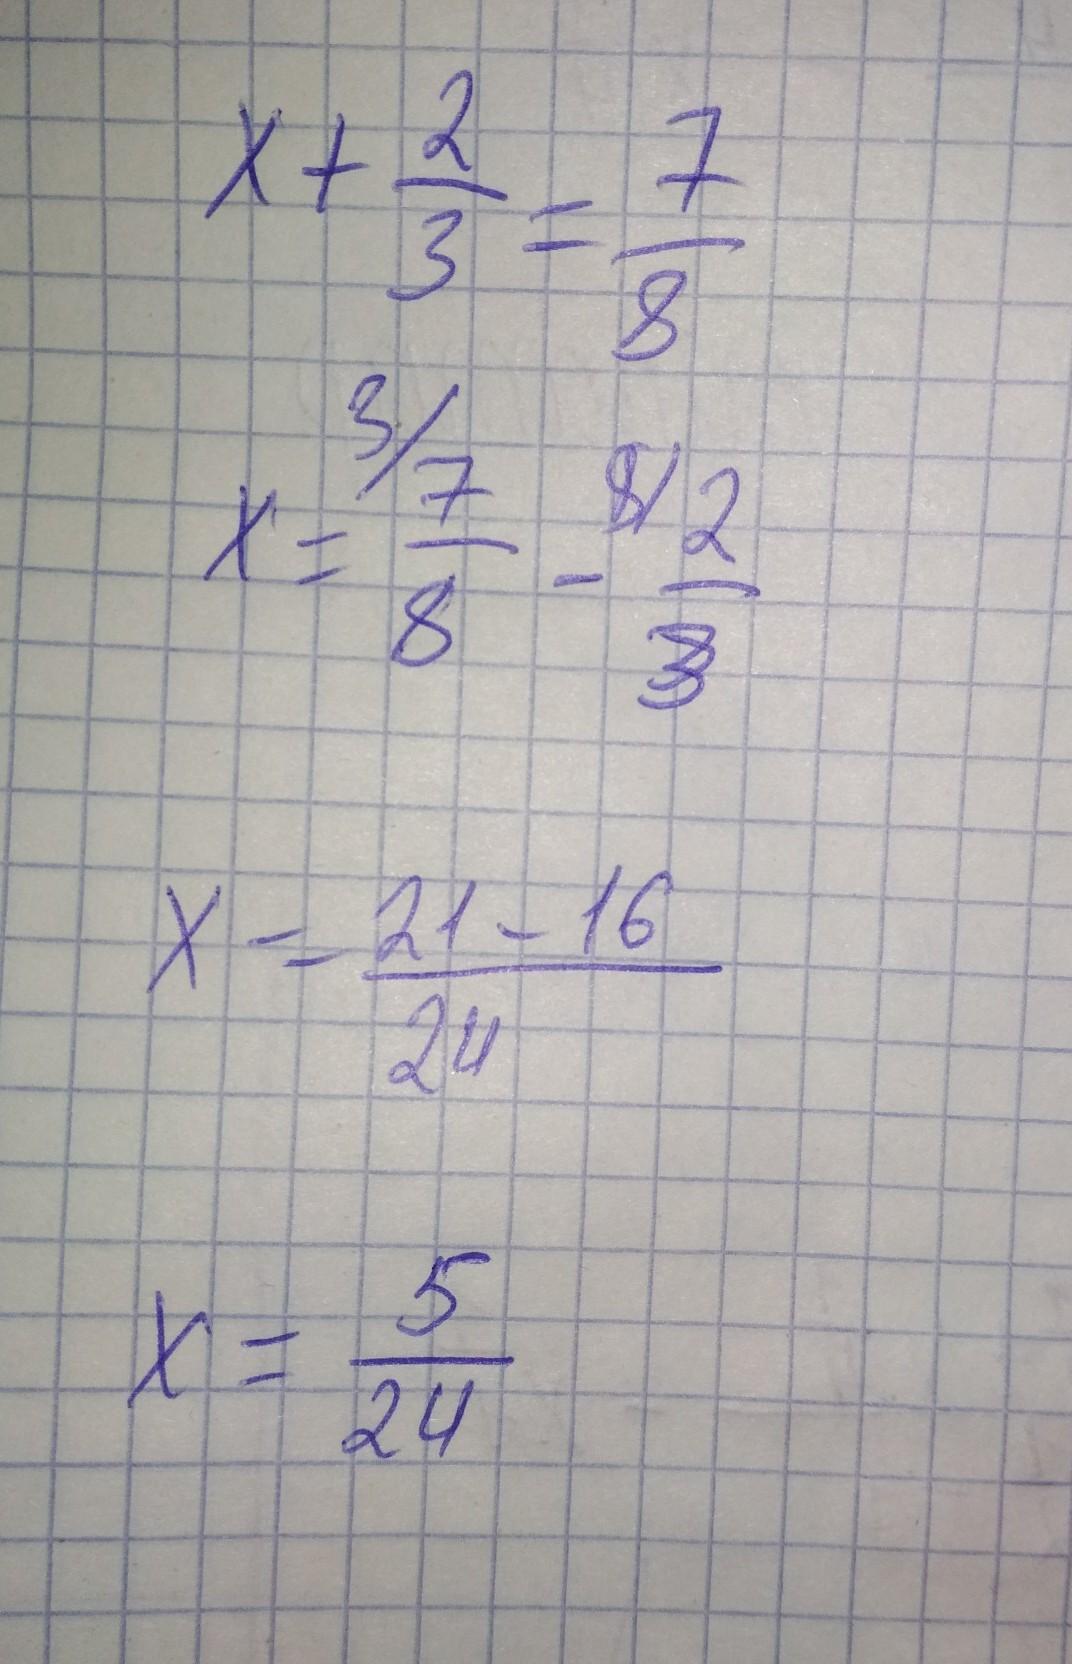 x + 2/3 = 7/8
x = 3/ 7/8 - 8/ 2/3
x = 21 - 16 / 24
x = 5/24